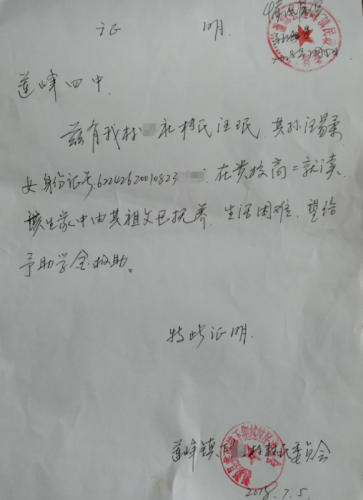 证 明
莲峰四中
兹有我村 社村民汪珉 其孙汪易柔
女 身份证号:62242620010823 在贵校高二就读.
该生家中由其祖父母抚养. 生活困难. 望给
予助学金救助。
特此证明.
莲峰镇 村村民委员会
2018.7.5